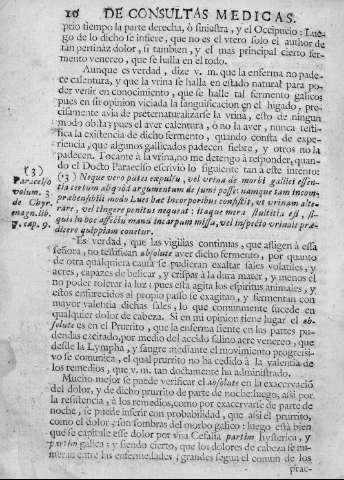 10 DE CONSULTAS MEDICAS.
prio tiempo la parte derecha, ò siniestra, y el Occipucio: Lue-
go de lo dicho se infiere, que no es el vtero solo el author de
tan pertinàz dolor, si tambien, y el mas principal cierto fer-
mento venereo, que se halla en el todo.
Aunque es verdad, dize v. m. que la enferma no pade-
ce calentura, y que la vrina se halla en estado natural para po-
der venir en conocimiento, que se halle tal fermento galico;
pues en su opinion viciada la sanguificacion en el higado, pre-
cisamente avia de preternaturalizarse la vrina, esto de ningun
modo obsta; pues el aver calentura, ò no la aver, nunca testi-
fica la existencia de dicho fermento, quando consta de expe-
riencia, que algunos gallicados padecen fiebre, y otros no la
padecen. Tocante à la vrina, no me detengo à responder, quan-
do el Docto Paracelso escriviò lo siguiente tan à este intento:
(3)
Paracelso
volum. 3.
de Chyr.
magn. lib.
cap. 9.
(3) Neque vero potes ex pulsu, vel vrina de morbi gallici essen-
tia certum aliquid argumentum desumi posse: namque tam incom-
præhensibilis modo Lues hæc incorporibus consistit, vt vrinam alte-
rare, vel tingere penitus nequeat: itaque mera stultitia est, si
quis in hoc affectu manu incarpum missa, vel inspectio vrinali præ-
dicere quippiam conetur.
Es verdad, que las vigilias continuas, que afligen à essa
señora, no testifican absolute aver dicho fermento, por quanto
de otra qualquiera causa se pudieran exaltar sales volatiles, y
acres, capazes de bellicar, y crispar à la dura mater, y menos el
no poder tolerar la luz: pues està agita los espiritus animales, y
estos enfurecidos al propio passo se exagitan, y fermentan con
mayor valentia dichas sales, lo que comunmente sucede en
qualquier dolor de cabeza. Si en mi opinion tiene lugar el ab-
solute es en el Prurito, que la enferma siente en las partes pu-
dendas excitado, por medio del accido salino acre venereo, que
desde la Lympha, y sangre mediante el movimiento progressi-
vo se comunica, el qual prurito no ha cedido à la valentia de
los remedios, que v. m. tan doctamente ha administrado.
Mucho mejor se puede verificar el absolute en la exacervaciõ
del dolor, y de dicho prurito de parte de noche: luego, assi por
la resistencia, à los remedios, como por exacervarse de parte de
noche, se puede inferir con probabilidad, que assi el prurito,
como el dolor, son sombras del morbo galico: luego està bien
que se capitule esse dolor por vna Cefalia partim hysterica, y
partim galica; y siendo cierto, que los dolores de cabeza se nu-
meran entre las enfermedades; grandes segun el comun de los
prac-